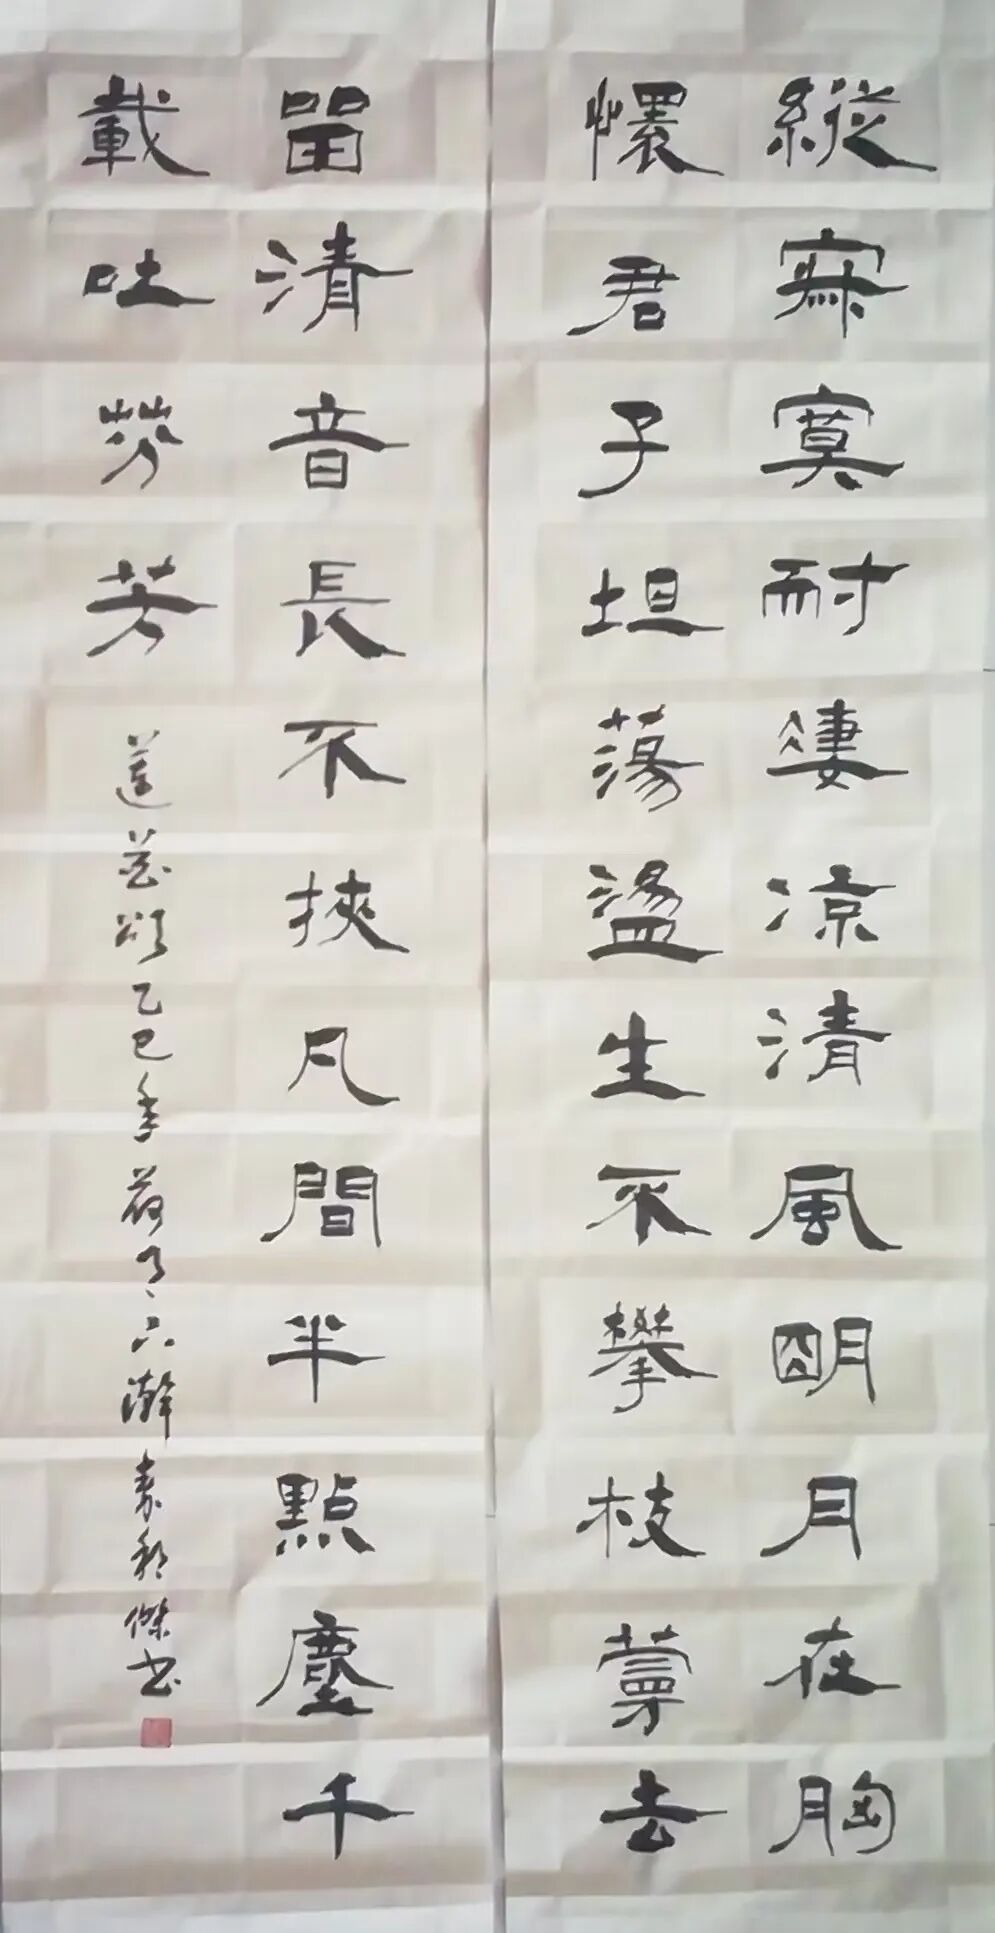 縱寂寞耐淒涼清風明月在胸
懷君子坦蕩蕩生不攀枝蔓去
留清音長不挾凡間半點塵千
載吐芬芳
蓮花頌乙巳年荷月六瀚袁利傑书